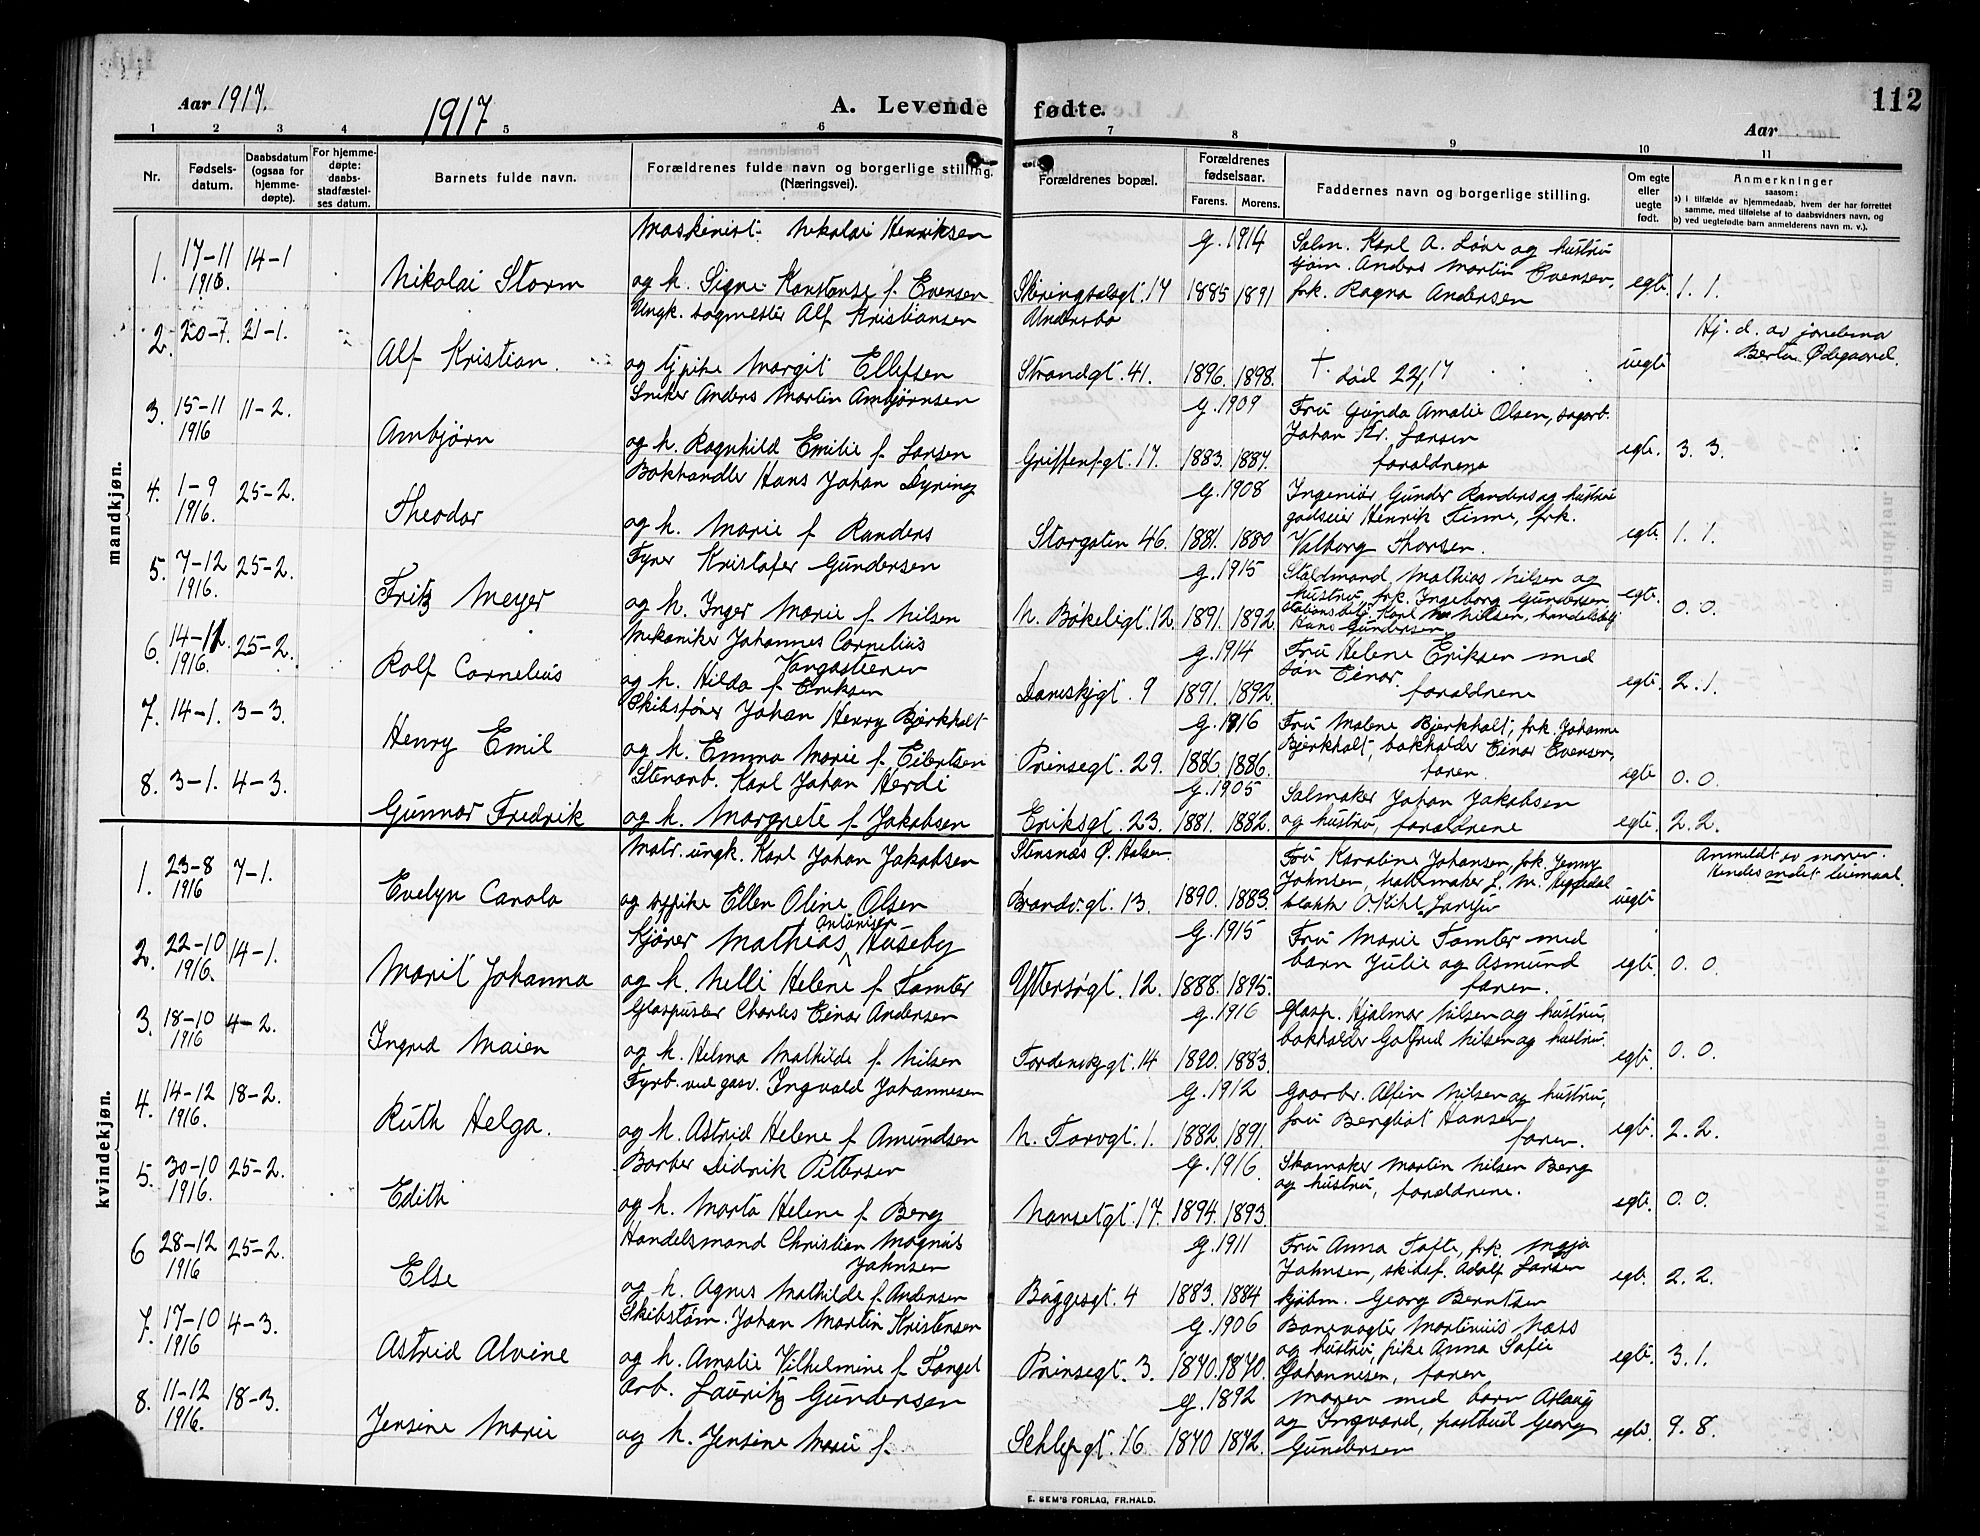 Aar 1917.
1917
A. Levende fødte.
112
Aar
1 2 3 4 5 6 7 8 9 10 11
Nr.
Fødsels-datum.
Daabsdatum (ogsaa for hjemme-døpte).
For hjemme-døpte: daabs-stadfæstel-ses datum.
Barnets fulde navn.
Forældrenes fulde navn og borgerlige stilling. (Næringsvei).
Forældrenes bopæl.
Forældrenes fødselsaar.
Farens. Morens.
Faddernes navn og borgerlige stilling.
Om egte eller uegte født.
Anmerkninger
saasom:
a) i tilfælde av hjemmedaab, hvem der har forrettet samme, med tilføielse af to daabsvidners navn, og
b) ved uegtefødte barn anmelderens navn m. v.).
mandkjøn.
Maskinist Nikolai Henriksen
g. 1914
Salm. Karl A. Love og hustru
1. 17-11 1916. 14-1
Nikolai Storm
og h. Signe Konstanse f. Evensen
Skiringsalsgt. 17 1885 1891
Anders Martin Evensen,
frk. Ragna Andersen
egte. 1. 1.
2. 20-7. 21-1.
Alf Kristian.
Ungk. Alf Kristiansen
og pike Margit Ellefsen
Strandgt. 41. 1896. 1898.
† død
uegte
Hj. d. av jordema
Berta Ødegaard.
3. 15-11 1916 11-2.
Ambjørn
Sniker Anders Martin Ambjørnsen
og h. Ragnhild Emilie f. Larsen
Griffenf.gt. 17. 1883. 1887.
g. 1909
Fru Gunda Amalie Olsen, sagarb.
Johan Kr. Larsen
foraldrene
egte. 3. 3.
4. 1-9 1916. 25-2.
Theodor
Bokhandler Hans Johan Dyring
og h. Marie f. Randers
Storgaten 46. 1881. 1880
g. 1908
Ingeniør Gunder Randers og hustru
godseier Henrik Finne, frk.
Valborg Thorsen.
egte. 1. 1.
5. 7-12 1916. 25-2.
Fritz Meyer
Fyrer Kristofer Gundersen
og h. Inger Marie f. Nilsen
N. Bøkeligt. 12. 1891. 1892.
g. 1915
Staldmand Mathias Nilsen og
hustru, frk. Ingeborg Gundersen
Karl Nilsen,
Hans Gundersen
egte. 0. 0.
6. 14-12 1916. 25-2.
Rolf Cornelius
Mekaniker Johannes Cornelius
og h. Hilda f. Eriksen
9 1891. 1892.
g. 1914
Fru Helene Eriksen med
søn Einar.
foraldrene
egte. 2. 1.
7. 14-1. 3-3.
Henry Emil
Skibsfører Johan Henry Bjerkholt
og h. Emma Marie f. Eilertsen
Prinsegt. 29. 1886. 1886.
g. 1916
Fru Malene Bjerkholt, frk. Johanne
Bjerkholt, bokholder Einar Evensen,
faren.
egte 0. 0.
8. 3-1. 4-3.
Gunnar Fredrik
Stenarb. Karl Johan Herdi
og h. Margrete f. Jakobsen
Eriksgt. 23. 1881. 1882.
g. 1905
Salmaker Johan Jakobsen
og hustru, foraldrene
egte. 2. 2.
kvindekjøn.
1. 23-8 1916 7-1.
Evelyn Carola
Matr. ungk. Karl Johan Jakobsen
og pike Ellen Oline Olsen
Stensnæs Ø. Halsen.
Brandv.gt. 13. 1890. 1883.
Fru Karoline Johansen, frk. Jenny
Johnsen,
uegte
Anmeldt av moren.
Hendes andet leiemaal.
2. 22-10 1916. 14-1.
Marit Johanna
Kjører Mathias Antonisen Huseby
og h. Nelli Helene f. Tamter
Yttersøgt. 12. 1888. 1895.
g. 1915
Fru Marie Tamter med
barn Julie og Asmund
faren.
egte. 0. 0.
3. 18-10 1916 4-2.
Ingrid Maien
Glaspuster Charles Einar Andersen
og h. Helma Mathilde f. Nilsen
Tordenskjgt. 14 1890. 1883.
g. 1916
Glasp. Hjalmar Nilsen og hustru,
bokholder Gotfred Nilsen og hustru.
egte. 0. 0.
4. 14-12 1916. 18-2.
Ruth Helga.
Fyrb. ved gasv. Ingvald Johannesen
og h. Astrid Helene f. Amundsen
N. Torvgt. 1. 1882. 1891.
g. 1912
Alfin Nilsen og hustru,
fru Bergliot Hansen
faren.
egte. 2. 2.
5. 30-10 1916. 25-2.
Edith
Barber Didrik Pettersen
og h. Marta Helene f. Berg
Nansetgt. 17. 1894. 1893.
g. 1916.
Skomaker Martin Nilsen Berg
og hustru, foraldrene.
egte. 0. 0.
6 28-12 1916 25-2.
Else
Handelsmand Christian Magnus
Johnsen
og h. Agnes Mathilde f. Andersen
Buggesgt. 4 1883. 1884
g. 1911
Fru Anna Tofte, frk. Maja
Johnsen, skibsf. Adolf Larsen
kjøbm. Georg Berntsen
egte. 2. 2.
7. 17-10 1916 4-3.
Astrid Alvine
Skibstøm. Johan Martin Kristensen
og h. Amalie Vilhelmine f. Fanget
Prinsegt. 3. 1870. 1870.
g. 1906
Banevogter Martinius Næss
og hustru, pike Anna Sofie
Johannesen, faren
egte. 3. 1.
8. 11-12 1916. 18-3.
Jensine Marie
Arb. Lauritz Gundersen
og h. Jensine Marie f.
16 1870 1872.
g. 1892
Moren med barn Aslaug
og Ingvard, postbud Georg
Gundersen
egte. 9. 8.
E. SEM'S FORLAG, FR.HALD.